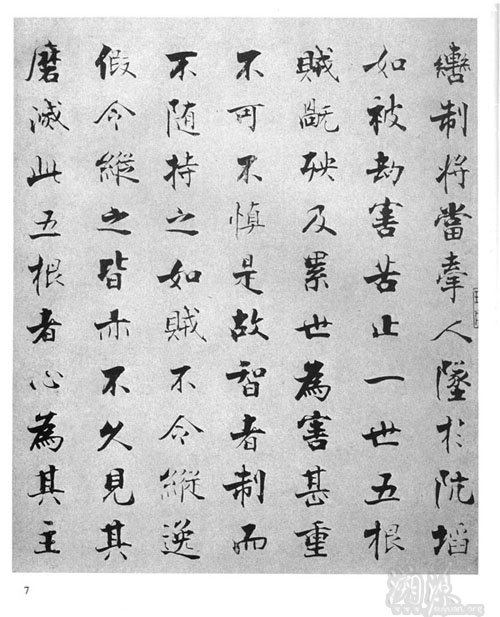 轡制將當牽人墜於阬埳
如被劫害苦止一世五根
賊旤殃及累世為害甚重
不可不慎是故智者制而
不随持之如賊不令縱逸
假令縱之皆亦不久見其
磨滅此五根者心為其主
7